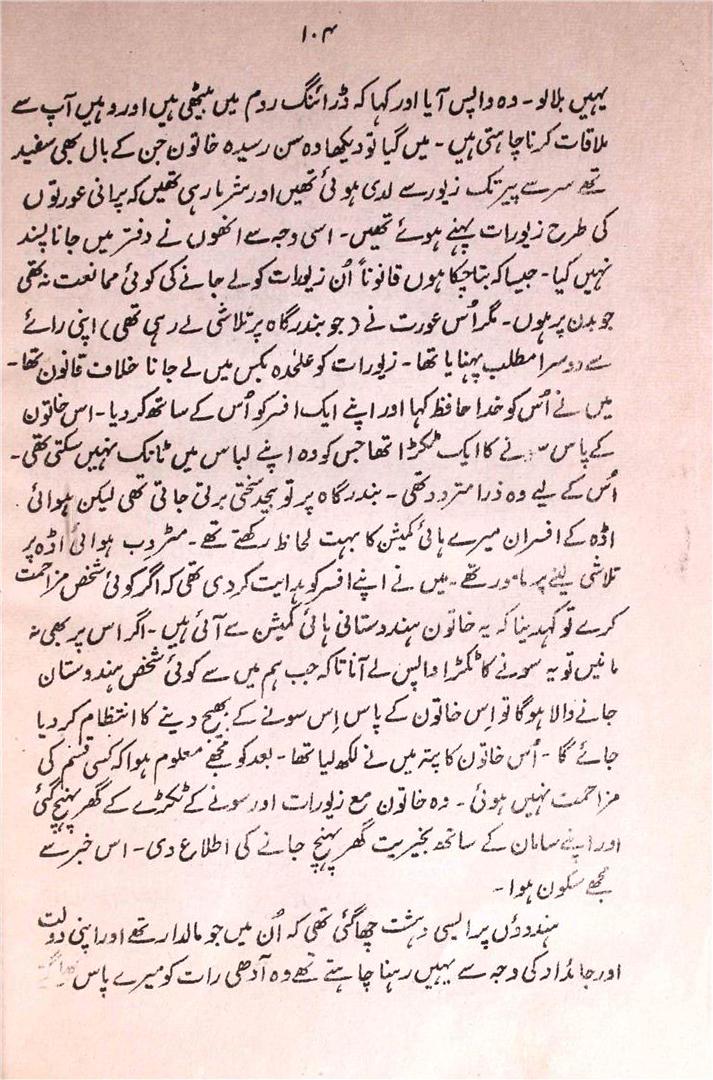 ۱۰۴
یہیں بلالو - وہ واپس آیا اور کہا کہ ڈرائنگ روم میں بیٹھی ہیں اور وہیں آپ سے
ملاقات کرنا چاہتی ہیں - میں گیا تو دیکھا وہ سن رسیدہ خاتون جن کے بال بھی سفید
تھے سر سے پیر تک زیور سے لدی ہوئی تھیں اور شرما رہی تھیں کہ پرانی عورتوں
کی طرح زیورات پہنے ہوئے تھیں - اسی وجہ سے انھوں نے دفتر میں جانا پسند
نہیں کیا - جیسا کہ بتا چکا ہوں قانوناً اُن زیورات کو لے جانے کی کوئی ممانعت نہ تھی
جو بدن پر ہوں - مگر اُس عورت نے (جو بندرگاہ پر تلاشی لے رہی تھی) اپنی رائے
سے دوسرا مطلب پہنایا تھا - زیورات کو علٰحدہ بکس میں لے جانا خلاف قانون تھا -
میں نے اُس کو خدا حافظ کہا اور اپنے ایک افسر کو اُس کے ساتھ کر دیا - اس خاتون
کے پاس سونے کا ایک ٹکڑا تھا جس کو وہ اپنے لباس میں ٹانک نہیں سکتی تھی -
اُس کے لیے وہ ذرا متردد تھی - بندرگاہ پر تو بیحد سختی برتی جاتی تھی لیکن ہوائی
اڈہ کے افسران میرے ہائی کمیشن کا بہت لحاظ رکھتے تھے - مٹر دب ہوائی اڈہ پر
تلاشی لینے پر مامور تھے - میں نے اپنے افسر کو ہدایت کر دی تھی کہ اگر کوئی شخص مزاحمت
کرے تو کہدینا کہ یہ خاتون ہندوستانی ہائی کمیشن سے آئی ہیں - اگر اس پر بھی نہ
مانیں تو یہ سونے کا ٹکڑا واپس لے آنا تاکہ جب ہم میں سے کوئی شخص ہندوستان
جانے والا ہوگا تو اِس خاتون کے پاس اِس سونے کے بھیج دینے کا انتظام کر دیا
جائے گا - اُس خاتون کا پتہ میں نے لکھ لیا تھا - بعد کو مجھے معلوم ہوا کہ کسی قسم کی
مزاحمت نہیں ہوئی - وہ خاتون مع زیورات اور سونے کے ٹکڑے کے گھر پہنچ گئی
اور اپنے سامان کے ساتھ بخیریت گھر پہنچ جانے کی اطلاع دی - اس خبر سے
مجھے سکون ہوا -
ہندوؤں پر ایسی دہشت چھاگئی تھی کہ اُن میں جو مالدار تھے اور اپنی دولت
اور جائداد کی وجہ سے یہیں رہنا چاہتے تھے وہ آدھی رات کو میرے پاس